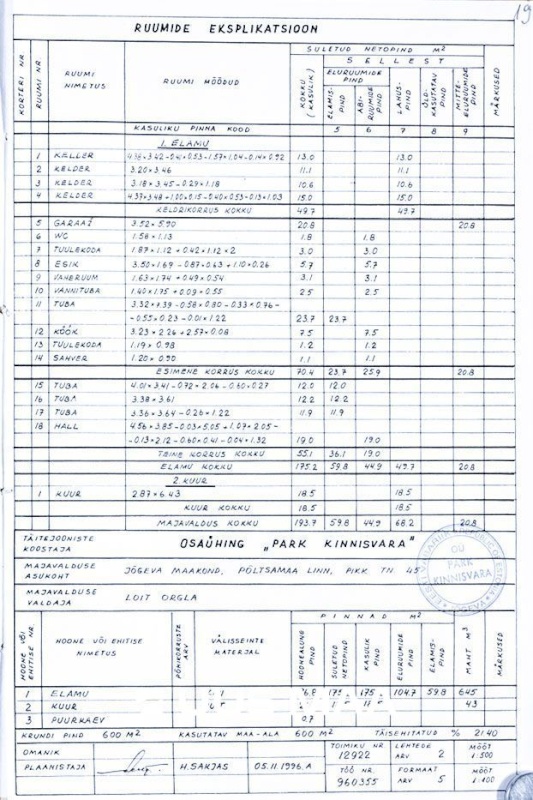 19
RUUMIDE EKSPLIKATSIOON
KORTERI NR
RUUMI NR
RUUMI NIMETUS
RUUMI MÕÕDUD
SULETUD NETOPIND M²
KOKKU (KASULIK)
SELLEST
ELURUUMIDE PIND
ELAMIS-PIND
ABI-RUUMIDE PIND
LAHUS-PIND
ÜLD-KASUTATAV PIND
MITTE-ELURUUMIDE PIND
MÄRKUSED
KASULIKU PINNA KOOD 5 6 7 8 9
1. ELAMU
1 KELDER 4.38×3.42-0.41×0.53-1.57×1.04-0.14×0.92 13.0 13.0
2 KELDER 3.20×3.46 11.1 11.1
3 KELDER 3.18×3.45-0.29×1.18 10.6 10.6
4 KELDER 4.39×3.48+1.00×0.15-0.40×0.53-0.13×1.03 15.0 15.0
KELDRIKORRUS KOKKU 49.7 49.7
5 GARAAŽ 3.52×5.90 20.8 20.8
6 WC 1.58×1.13 1.8 1.8
7 TUULEKODA 1.87×1.12+0.42×1.12×2 3.0 3.0
8 ESIK 3.50×1.69-0.87×0.63+1.10×0.26 5.7 5.7
9 VAHERUUM 1.63×1.74+0.49×0.54 3.1 3.1
10 VANNITUBA 1.40×1.75+0.09×0.55 2.5 2.5
11 TUBA 3.32××3.39-0.58×0.80-0.33×0.76-
-0.55×0.23-0.01×1.22 23.7 23.7
12 KÖÖK 3.23×2.26+2.57×0.08 7.5 7.5
13 TUULEKODA 1.19×0.98 1.2 1.2
14 SAHVER 1.20×0.90 1.1 1.1
ESIMENE KORRUS KOKKU 70.4 23.7 25.9 20.8
15 TUBA 4.01×3.41-0.72×2.06-0.60×0.27 12.0 12.0
16 TUBA 3.38×3.61 12.2 12.2
17 TUBA 3.36×3.64-0.26×1.22 11.9 11.9
18 HALL 4.56×3.85-0.03×5.05+1.07×2.05-
-0.13×2.12-0.60×0.41-0.04×1.32 19.0 19.0
TEINE KORRUS KOKKU 55.1 36.1 19.0
ELAMU KOKKU 175.2 59.8 44.9 49.7 20.8
2. KUUR
1 KUUR 2.87×6.43 18.5 18.5
KUUR KOKKU 18.5 18.5
MAJAVALDUS KOKKU 193.7 59.8 44.9 68.2 20.8
TÄITEJOONISTE KOOSTAJA OSAÜHING „PARK KINNISVARA"
OÜ PARK KINNISVARA
MAJAVALDUSE ASUKOHT JÕGEVA MAAKOND, PÕLTSAMAA LINN, PIKK TN. 45
MAJAVALDUSE VALDAJA LOIT ORGLA
HOONE VÕI EHITISE NR.
HOONE VÕI EHITISE NIMETUS
PÕHIKORRUSTE ARV
VÄLISSEINTE MATERJAL
PINNAD M²
HOONEALUNE PIND
SULETUD NETOPIND
KASULIK PIND
ELURUUMIDE PIND
ELAMIS-PIND
MAHT M³
MÄRKUSED
1 ELAMU 104.7 59.8 645
2 KUUR 43
3 PUURKAEV 0.7
KRUNDI PIND 600 M² KASUTATAV MAA-ALA 600 M² TÄISEHITATUD % 21.40
OMANIK
PLAANISTAJA H.SAKJAS 05.11.1996.A
TOIMIKU NR 12922
LEHTEDE ARV 2
MÕÕT 1:500
TÖÖ NR. 960355
FORMAAT ARV 5
MÕÕT 1:100